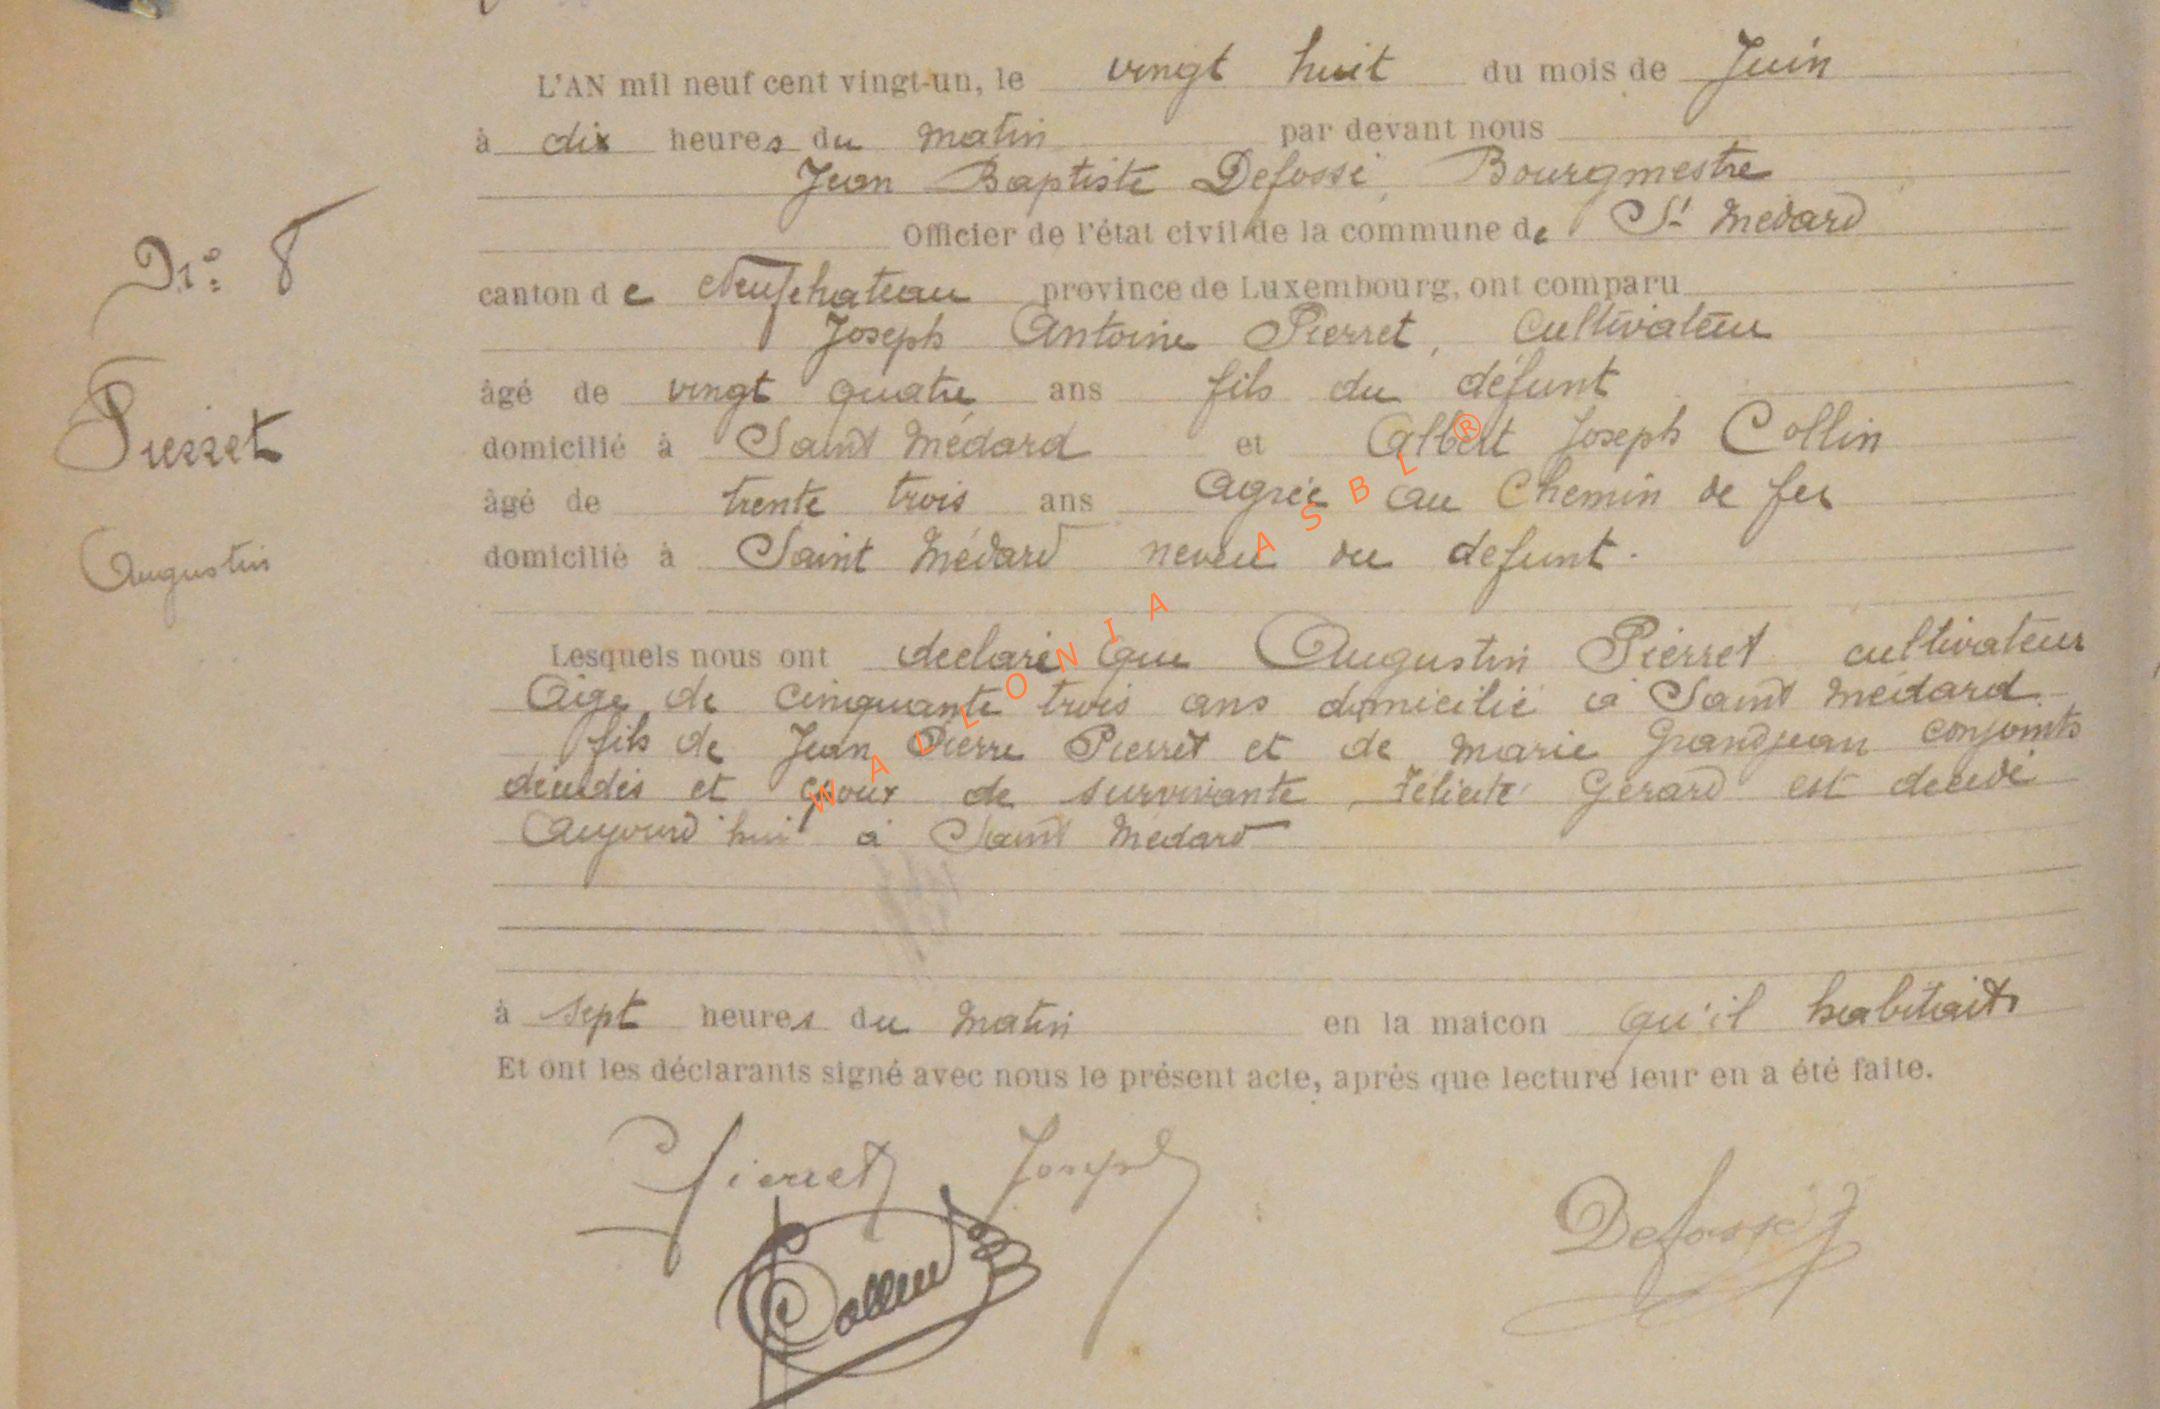 L'AN mil neuf cent vingt-un, le vingt huit du mois de Juin
à dix heures du matin par devant nous
Jean Baptiste Defossé, Bourgmestre
Officier de l'état civil de la commune de St Médard
N° 8
canton de Neufchateau province de Luxembourg, ont comparu
Joseph Antoine Pierret, cultivateur
Pierret
âgé de vingt quatre ans fils du défunt
domicilié à Saint Médard et Albert Joseph Collin
âgé de trente trois ans Agréé au Chemin de fer
Augustin
domicilié à Saint Médard neveu du defunt.
Lesquels nous ont declaré que Augustin Pierret cultivateur
Age de cinquante trois ans domicilié à Saint Médard
fils de Jean Pierre Pierret et de Marie Grandjean conjoints
décédés et époux de survivante, Félicité Gérard est decedé
Aujourd'hui à Saint Médard
à sept heures du matin en la maison qu'il habitait
Et ont les déclarants signé avec nous le présent acte, après que lecture leur en a été faite.
Pierret Joseph
Defossé
Collin
WALLONIA ASBL ®